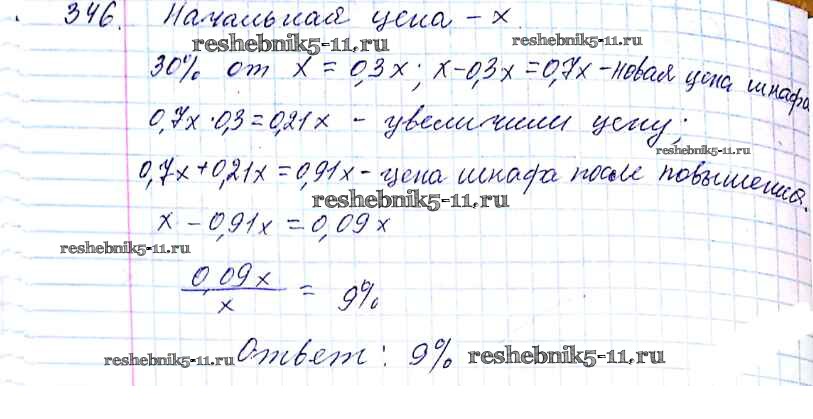 346. Начальная цена - x
reshebnik5-11.ru
reshebnik5-11.ru
30% от x = 0,3x; x-0,3x=0,7x-новая цена шкафа
0,7x·0,3=0,21x - увеличили цену;
reshebnik5-11.ru
0,7x+0,21x=0,91x-цена шкафа после повышения.
reshebnik5-11.ru
x - 0,91x = 0,09x
reshebnik5-11.ru
0,09x / x = 9%
reshebnik5-11.ru Ответ: 9% reshebnik5-11.ru